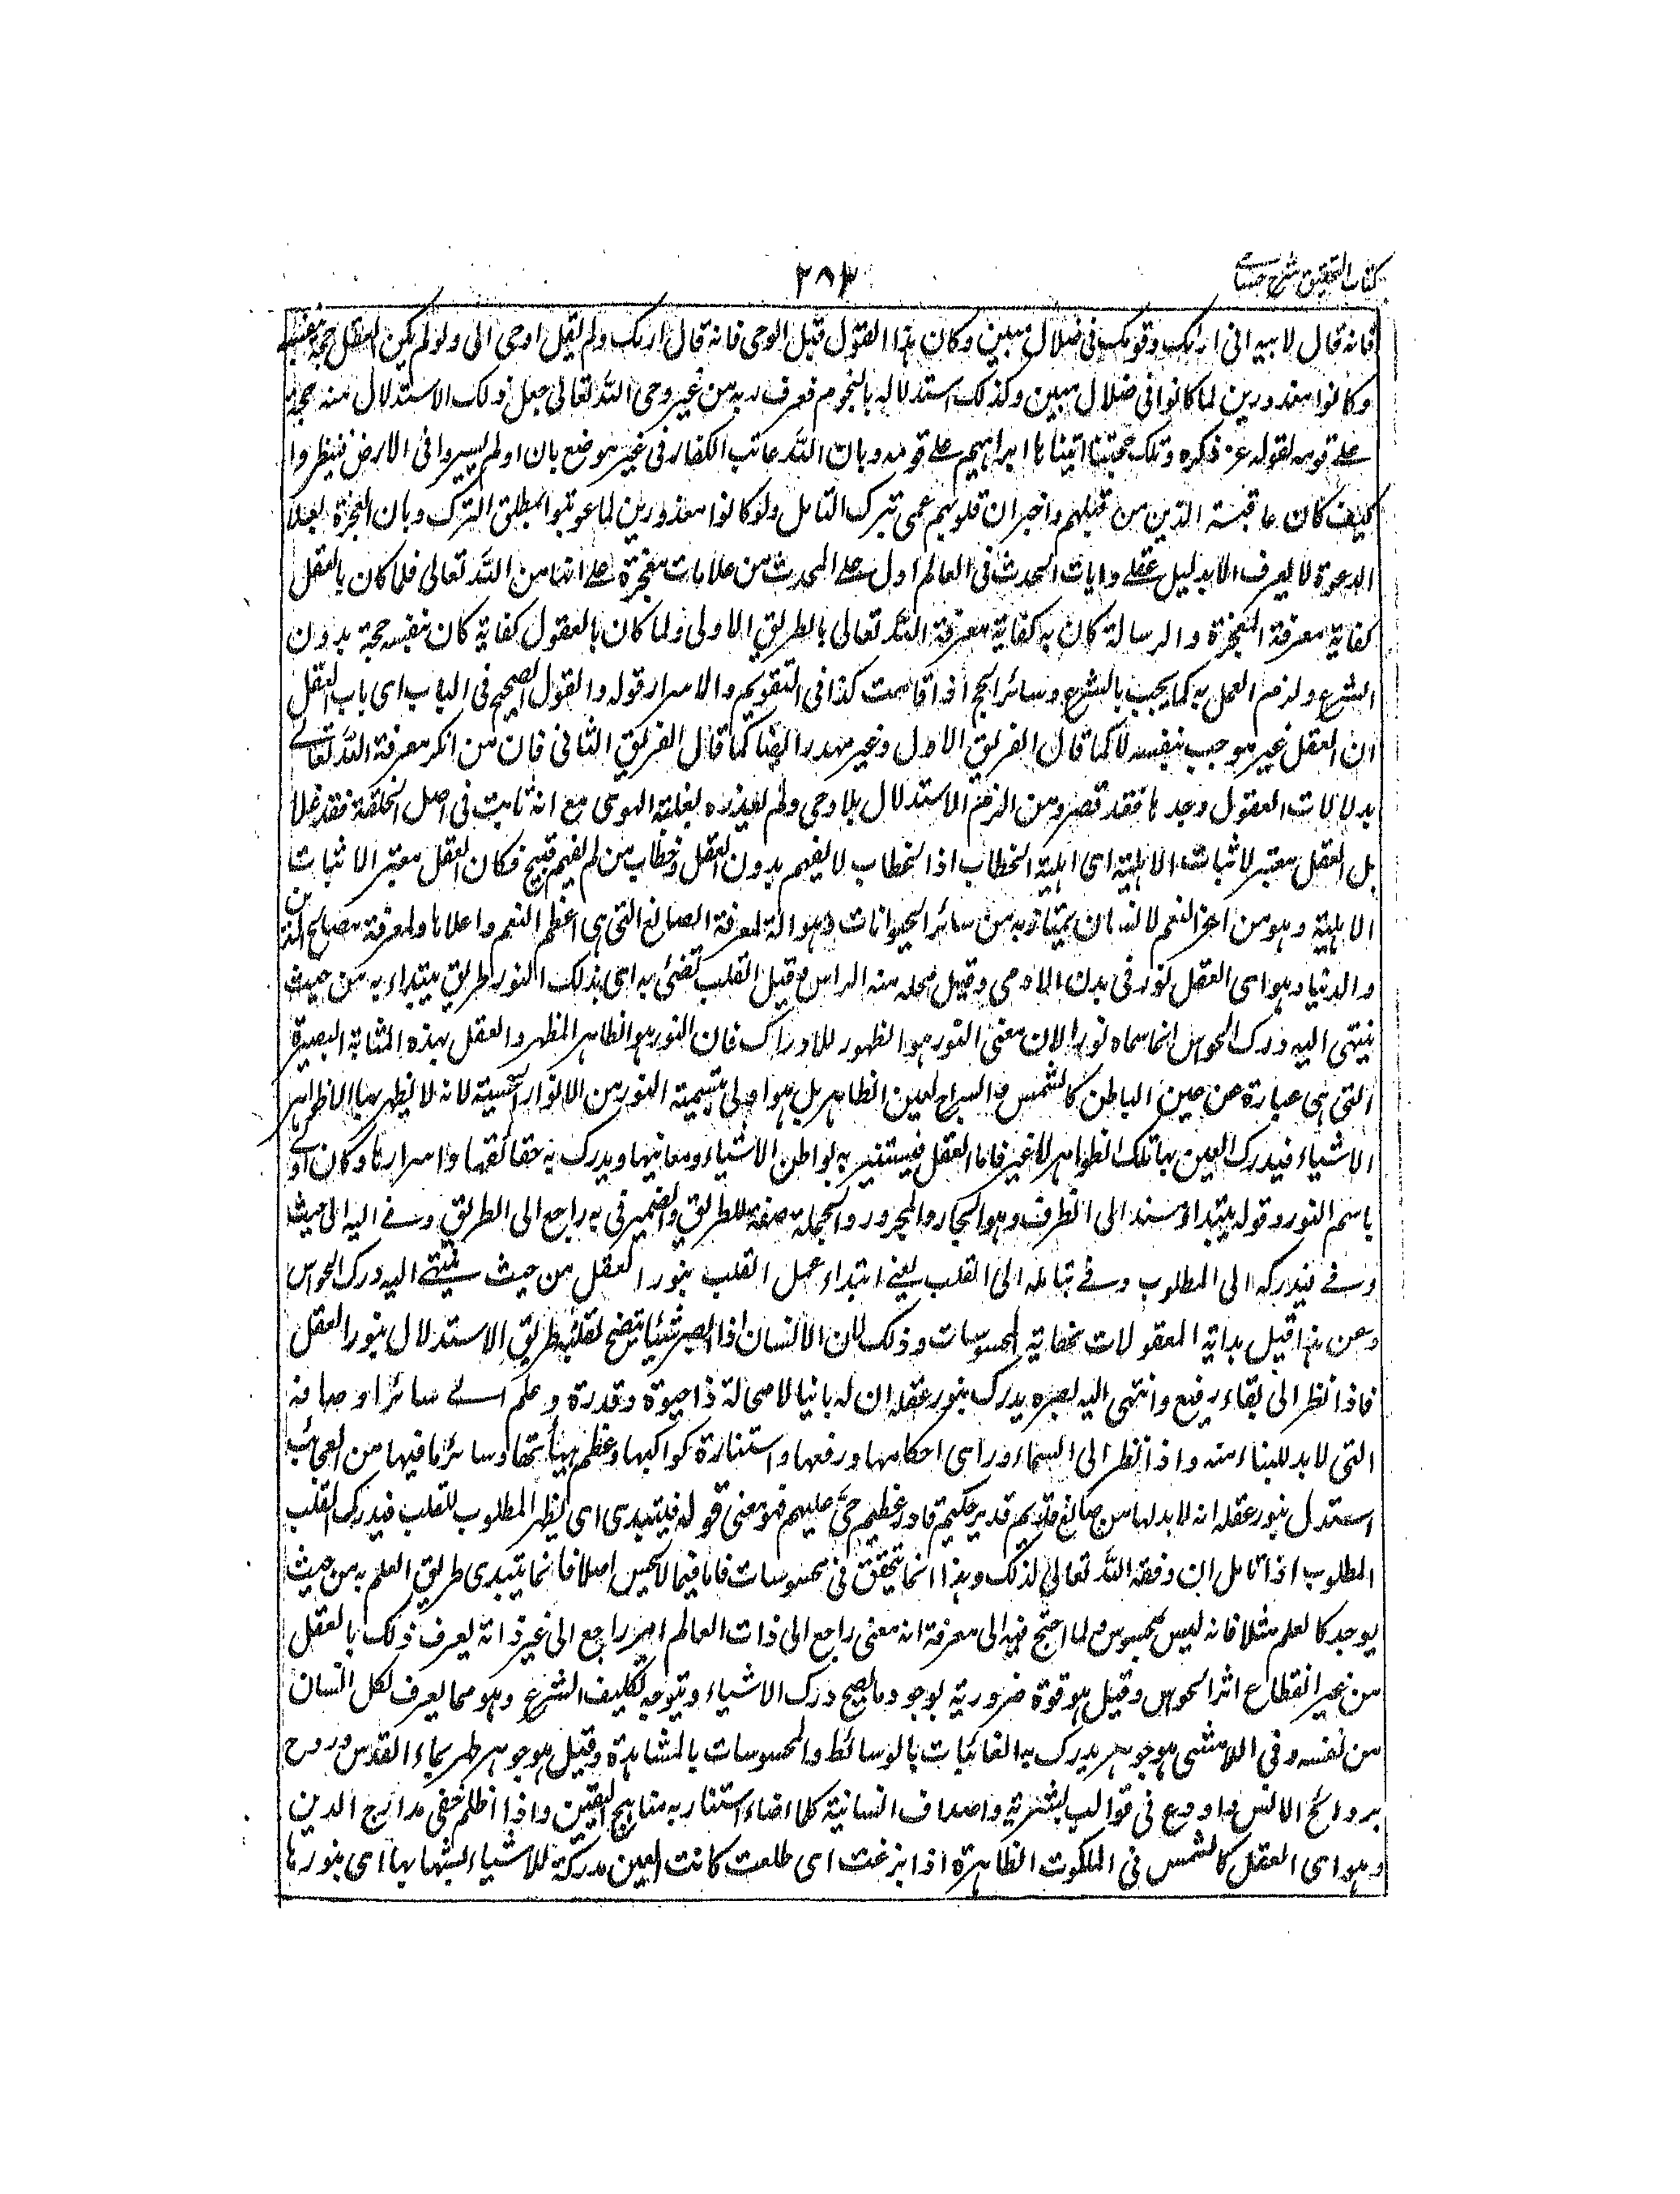 كتاب التحقيق شرح حسامي
٢٨٣
فانه قال لابيه انى اراك وقومك فى ضلال مبين وكان هذا القول قبل الوحى فانه قال اراك ولم يقل اوحى الى ولو لم يكن العقل حجة بنفسه
وكانوا معذورين لما كانوا فى ضلال مبين وكذلك استدلاله بالنجوم فعرف ربه من غير وحى الله تعالى جعل ذلك الاستدلال منه حجة
على قومه لقوله عز ذكره وتلك حجتنا اتيناها ابراهيم على قومه وبان الله عاتب الكفار فى غير موضع بان اولم يسيروا فى الارض فينظروا
كيف كان عاقبة الذين من قبلهم واخبر ان قلوبهم عمى بترك التامل ولو كانوا معذورين لما عوتبوا بمطلق الترك وبان المعجزة بعد
الدعوة لا يعرف الا بدليل عقلى وايات الحدث فى العالم ادل على المحدث من علامات معجزة على انها من الله تعالى فلما كان بالعقل
كفاية معرفة المعجزة والرسالة كان به كفاية معرفة الله تعالى بالطريق الاولى ولما كان بالعقول كفاية كان بنفسه حجة بدون
الشرع ولزم العمل به كما يجب بالشرع وسائر الحجج اذا قامت كذا فى التقويم والاسرار قوله والقول الصحيح فى الباب اى باب العقل
ان العقل غير موجب بنفسه لا كما قال الفريق الاول وغير مهدر ايضا كما قال الفريق الثانى فان من انكر معرفة الله تعالى
بدلالات العقول وحدها فقد قصر ومن الزم الاستدلال بلا وحى ولم يعذره بغلبة الهوى مع انه ثابت فى اصل الخلقة فقد غلا
بل العقل معتبر لاثبات الاهلية اى اهلية الخطاب اذ الخطاب لا يفهم بدون العقل وخطاب من لم يفهم قبيح فكان العقل معتبر الاثبات
الاهلية وهو من اعز النعم لان الانسان يمتاز به من سائر الحيوانات وهو الة لمعرفة الصانع التى هى اعظم النعم واعلاها ولمعرفة مصالح الدين
والدنيا وهو اى العقل نور فى بدن الادمى وقيل محله منه الراس وقيل القلب تضئ به اى بذلك النور طريق يبتداء به من حيث
ينتهى اليه درك الحواس انما سماه نورا لان معنى النور هو الظهور للادراك فان النور هو الظاهر المظهر والعقل بهذه المثابة البصيرة
التى هى عبارة عن عين الباطن كالشمس والسراج لعين الظاهر بل هو اولى بتسمية النور من الانوار الحسية لانه لا يظهر بها الا ظواهر
الاشياء فيدرك العين بها تلك الظواهر لا غير فاما العقل فيستنير به بواطن الاشياء ومعانيها ويدرك به حقائقها واسرارها وكان اولى
باسم النور وقوله يبتداء مسند الى الظرف وهو الجار والمجرور والجملة صفة للطريق والضمير فى به راجع الى الطريق وفى اليه الى حيث
وفى فيدركه الى المطلوب وفى بتامله الى القلب يعنى ابتداء عمل القلب بنور العقل من حيث ينتهى اليه درك الحواس
وعن هذا قيل بداية المعقولات نهاية المحسوسات وذلك لان الانسان اذا ابصر شيئا يتضح لقلبه طريق الاستدلال بنور العقل
فاذا نظر الى بناء رفيع وانتهى اليه بصره يدرك بنور عقله ان له بانيا لا محالة ذا حيوة وقدرة وعلم الى سائر اوصافه
التى لا بد للبناء منه واذا نظر الى السماء وراى احكامها ورفعها واستنارة كواكبها وعظم هيأتها وسائر ما فيها من العجائب
استدل بنور عقله انه لا بد لها من صانع قديم قدير حكيم قادر عظيم حى عليم فهو معنى قوله فيبتدى اى يظهر المطلوب للقلب فيدرك القلب
المطلوب اذا تامل ان وفقه الله تعالى لذلك وهذا انما يتحقق فى محسوسات فاما فيما لا يحس اصلا فانما يبتدى طريق العلم به من حيث
يوجد كالعلم مثلا فانه ليس بمحسوس ولما احتج فيه الى معرفة انه معنى راجع الى ذات العالم ام راجع الى غير ذاته يعرف ذلك بالعقل
من غير انقطاع اثر الحواس وقيل هو قوة ضرورية بوجودها يصح درك الاشياء ويتوجه تكليف الشرع وهو مما يعرف لكل انسان
من نفسه وفى اللامشى هو جوهر يدرك به الغائبات بالوسائط والمحسوسات بالمشاهدة وقيل هو جوهر طهر بماء القدس وروح
بروائح الانس واودع فى قوالب بشرية واصداف انسانية كلما اضاء استنار به مناهج اليقين واذا اظلم خفى مدارج الدين
وهو اى العقل كالشمس فى الملكوت الظاهرة اذا بزغت اى طلعت كانت العين مدركة للاشياء بشهابها اى بنورها